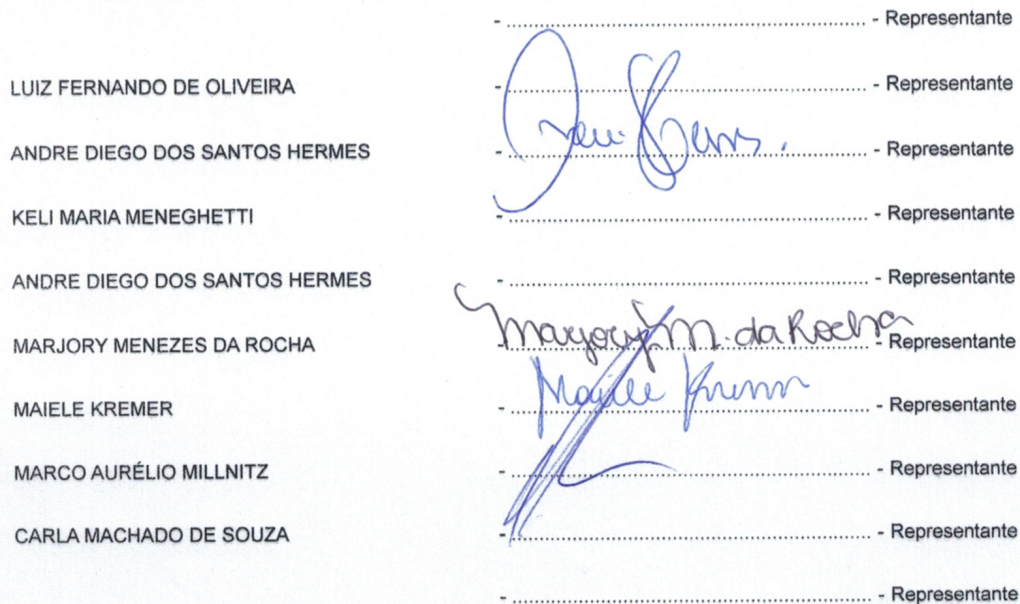 - ........................................................................ - Representante
LUIZ FERNANDO DE OLIVEIRA - ........................................................................ - Representante
ANDRE DIEGO DOS SANTOS HERMES - ........................................................................ - Representante
KELI MARIA MENEGHETTI - ........................................................................ - Representante
ANDRE DIEGO DOS SANTOS HERMES - ........................................................................ - Representante
MARJORY MENEZES DA ROCHA - Marjory M. da Rocha - Representante
MAIELE KREMER - Maiele Kremer - Representante
MARCO AURÉLIO MILLNITZ - ........................................................................ - Representante
CARLA MACHADO DE SOUZA - ........................................................................ - Representante
- ........................................................................ - Representante